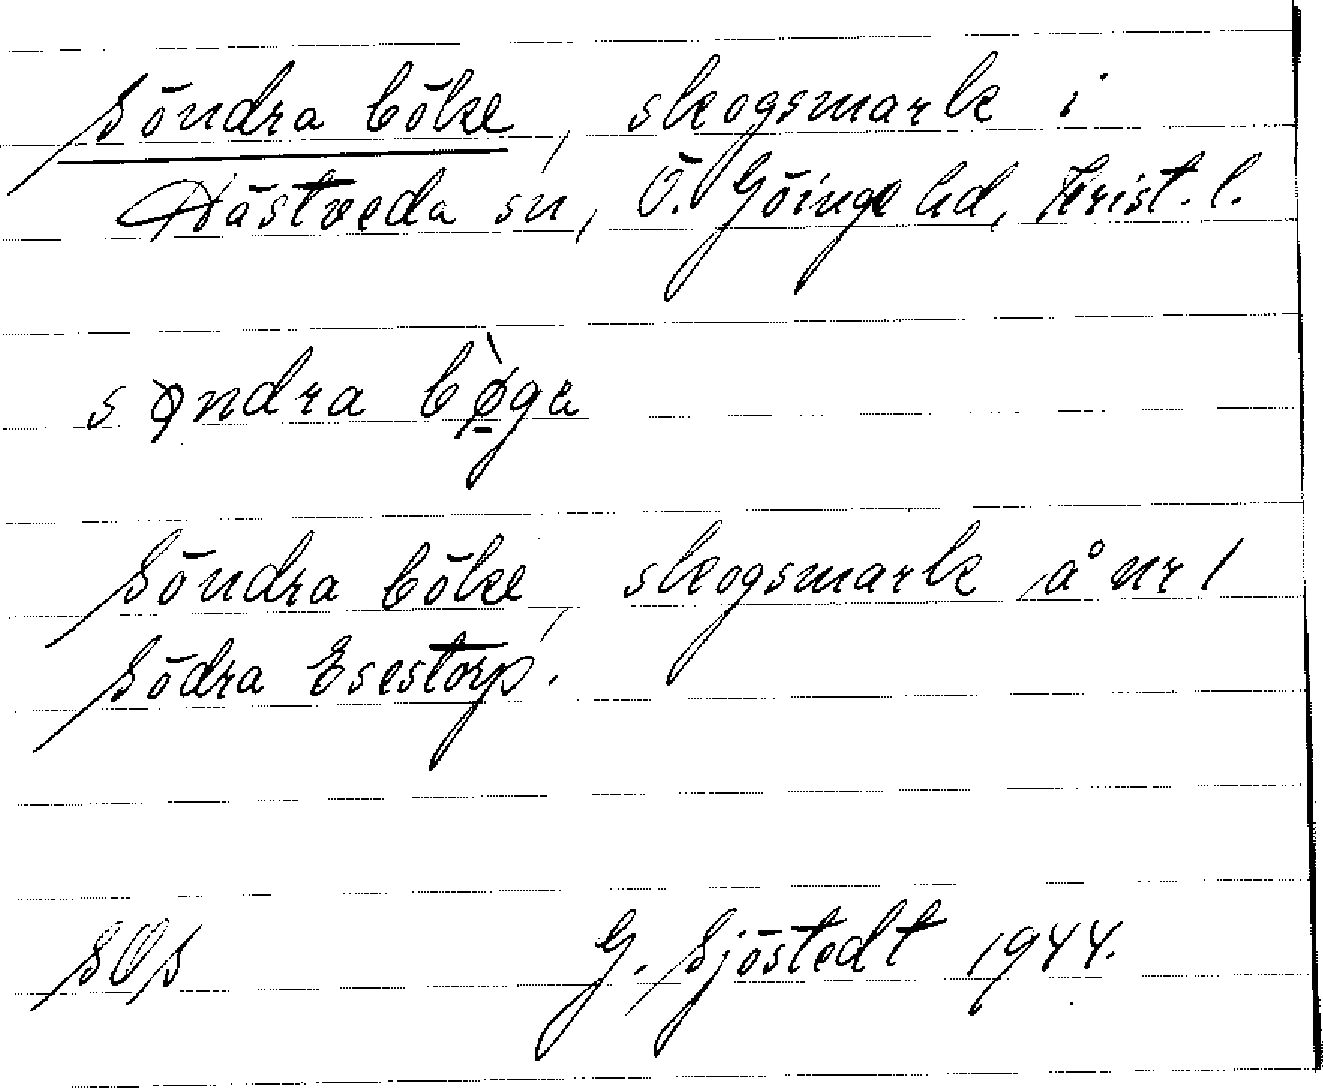 Söndra böke, skogsmark i
Hästveda sn, Ö. Göinge hd, Krist. l.
søndra bø̀ga
Söndra böke, skogsmark å nr 1
Södra Esestorp.
SOS G. Sjöstedt 1944.